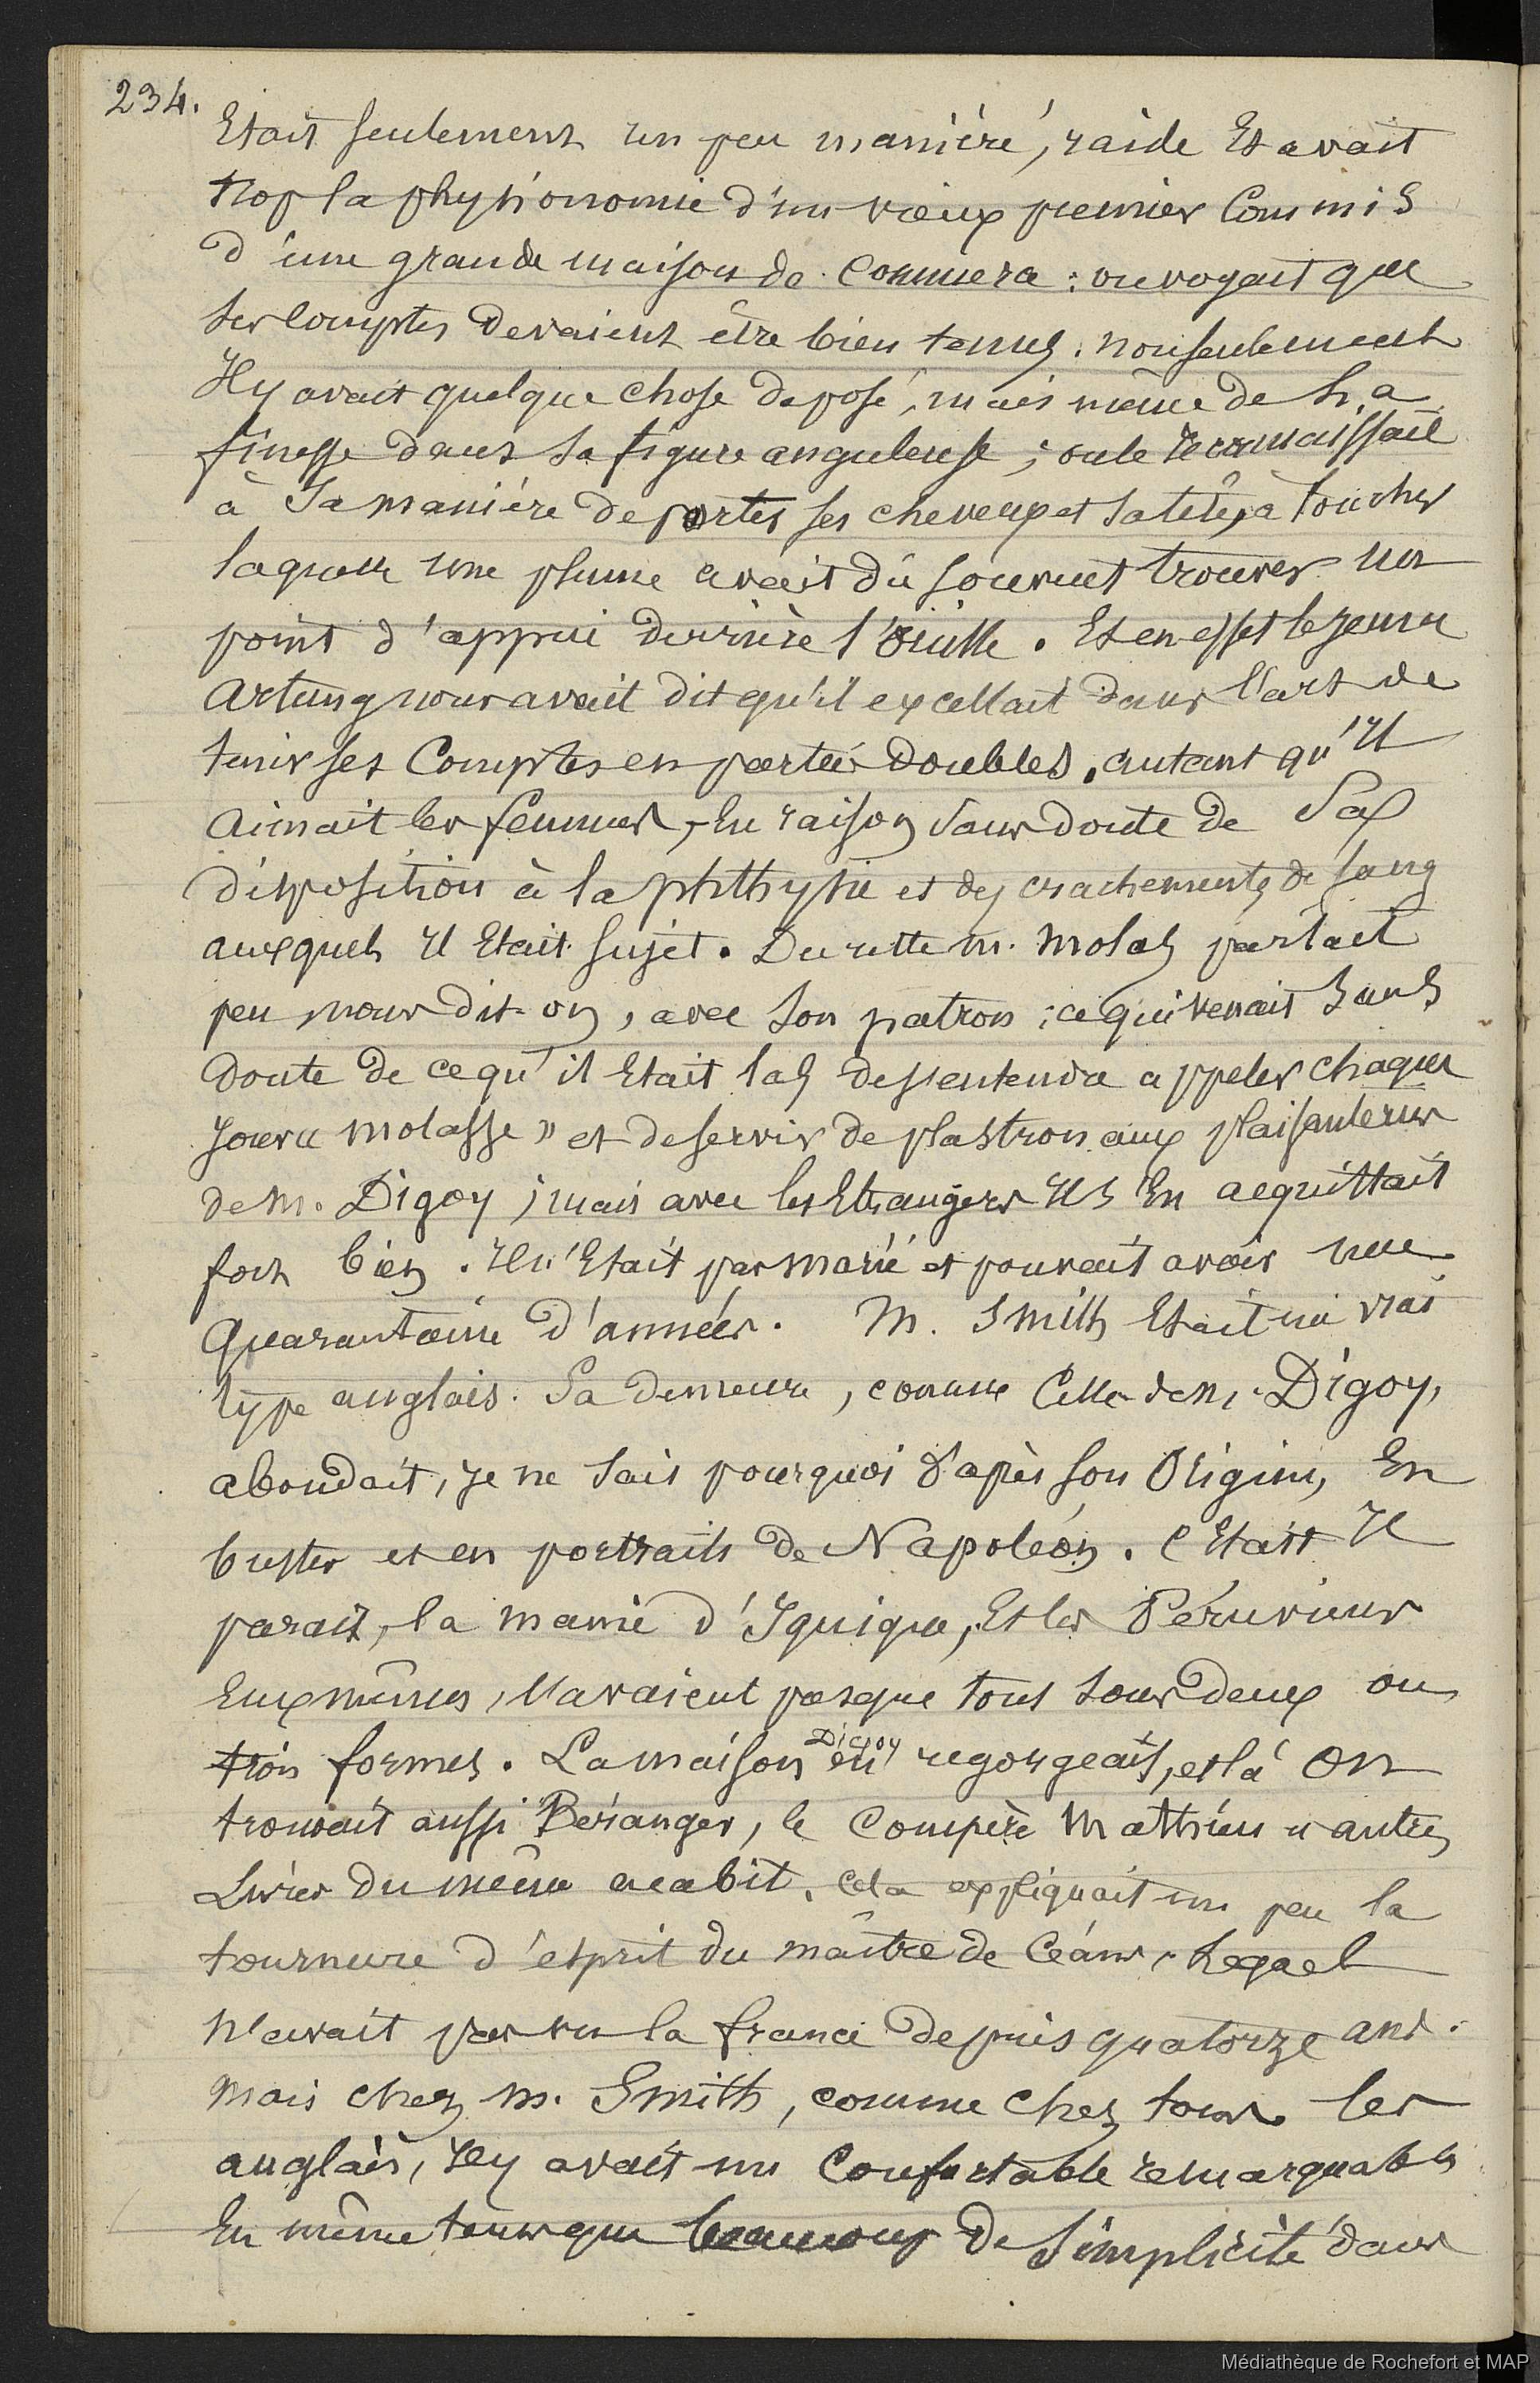 234.
Etait seulement un peu maniéré, raide Et avait
trop la physionomie d'un vieux premier Commis
d'une grande maison de Commerce : on voyait que
ses Comptes devaient être bien tenus. non seulement
Il y avait quelque chose de posé, mais même de la
finesse dans sa figure anguleuse ; on le reconnaissait
à sa manière de porter ses cheveux et sa tête, à toucher
laquelle une plume avait dû souvent trouver un
point d'appui derrière l'oreille. Et en effet le jeune
Artung nous avait dit qu'il excellait dans l'art de
tenir ses Comptes en partie doubles, autant qu'Il
aimait les femmes, En raison sans doute de Sa
disposition à la phthysie et des crachements de sang
auxquels Il Etait sujet. Du reste M. Molas parlait
peu nous dit-on, avec son patron ; ce qui venait sans
doute de ce qu'il Etait las de s'entendre appeler chaque
jour « molasse » et de servir de plastron aux plaisanteries
de M. Digoy ; mais avec les Etrangers Il s'En acquittait
fort bien. Il n'Etait pas marié et pouvait avoir une
Quarantaine d'années. M. Smith Etait un vrai
type anglais. Sa demeure, comme Celle de M. Digoy,
abondait, je ne sais pourquoi d'après son Origine, En
bustes et en portraits de Napoléon. C'Etait Il
parait, la manie d'Iquique, Et les Péruviens
Eux mêmes, l'avaient presque tous sous deux ou
trois formes. La maison Digoy en regorgeait, et là On
trouvait aussi Béranger, le Compère Mathieu et autres
Livres du même acabit. Cela expliquait un peu la
tournure d'esprit du maître de Céans, Lequel
n'avait pas vu la france depuis quatorze ans.
Mais chez M. Smith, comme chez tous les
anglais, Il y avait un Confortable remarquable
En même tems que beaucoup de simplicité dans
Médiathèque de Rochefort et MAP